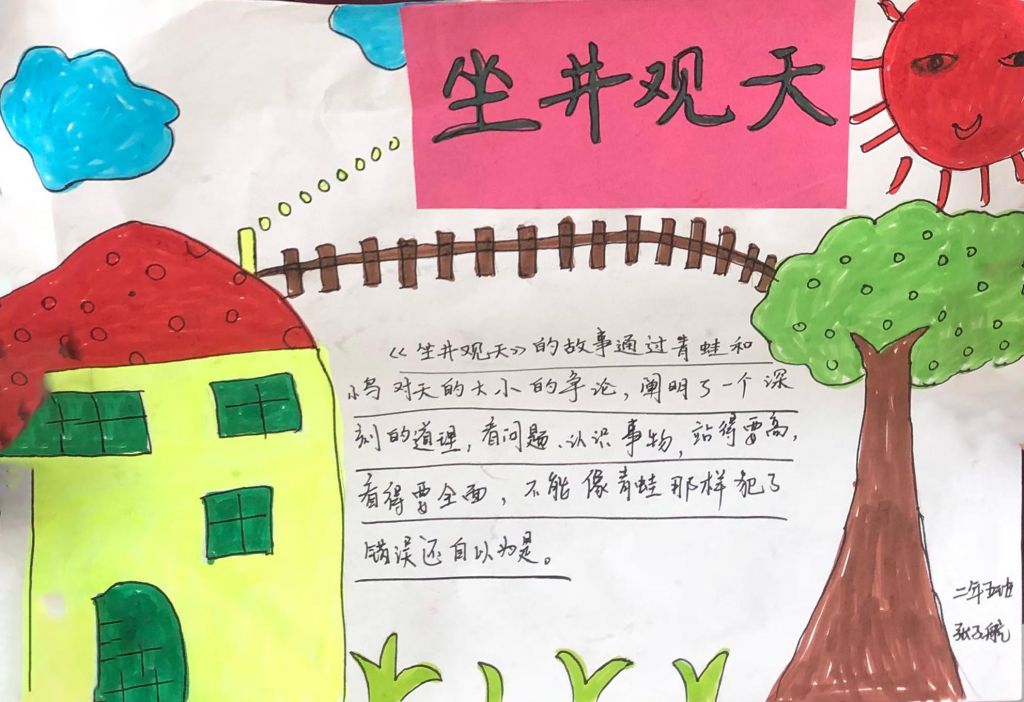 坐井观天
《坐井观天》的故事通过青蛙和
小鸟对天的大小的争论，阐明了一个深
刻的道理，看问题、认识事物，站得要高，
看得要全面，不能像青蛙那样犯了
错误还自以为是。
二年五班
张子航